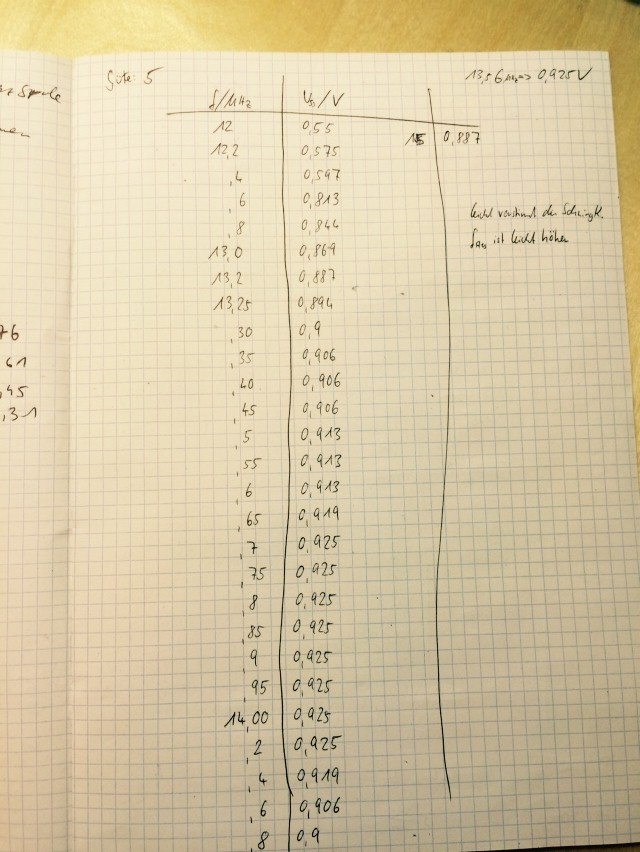 Güte: 5
13,56 MHz => 0,925 V
f/MHz U/V
12 0,55
12,2 0,575
,4 0,597
,6 0,813
,8 0,844
13,0 0,869
13,2 0,887
13,25 0,894
,30 0,9
,35 0,906
,40 0,906
,45 0,906
,5 0,913
,55 0,913
,6 0,913
,65 0,919
,7 0,925
,75 0,925
,8 0,925
,85 0,925
,9 0,925
,95 0,925
14,00 0,925
,2 0,925
,4 0,919
,6 0,906
,8 0,9
15 0,887
leicht verstimmt der Schwingk.
ist leicht höher
76
61
,45
,31